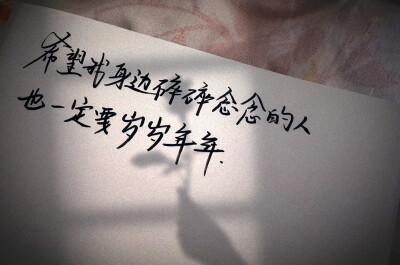 希望我身边碎碎念念的人
也一定要岁岁年年.